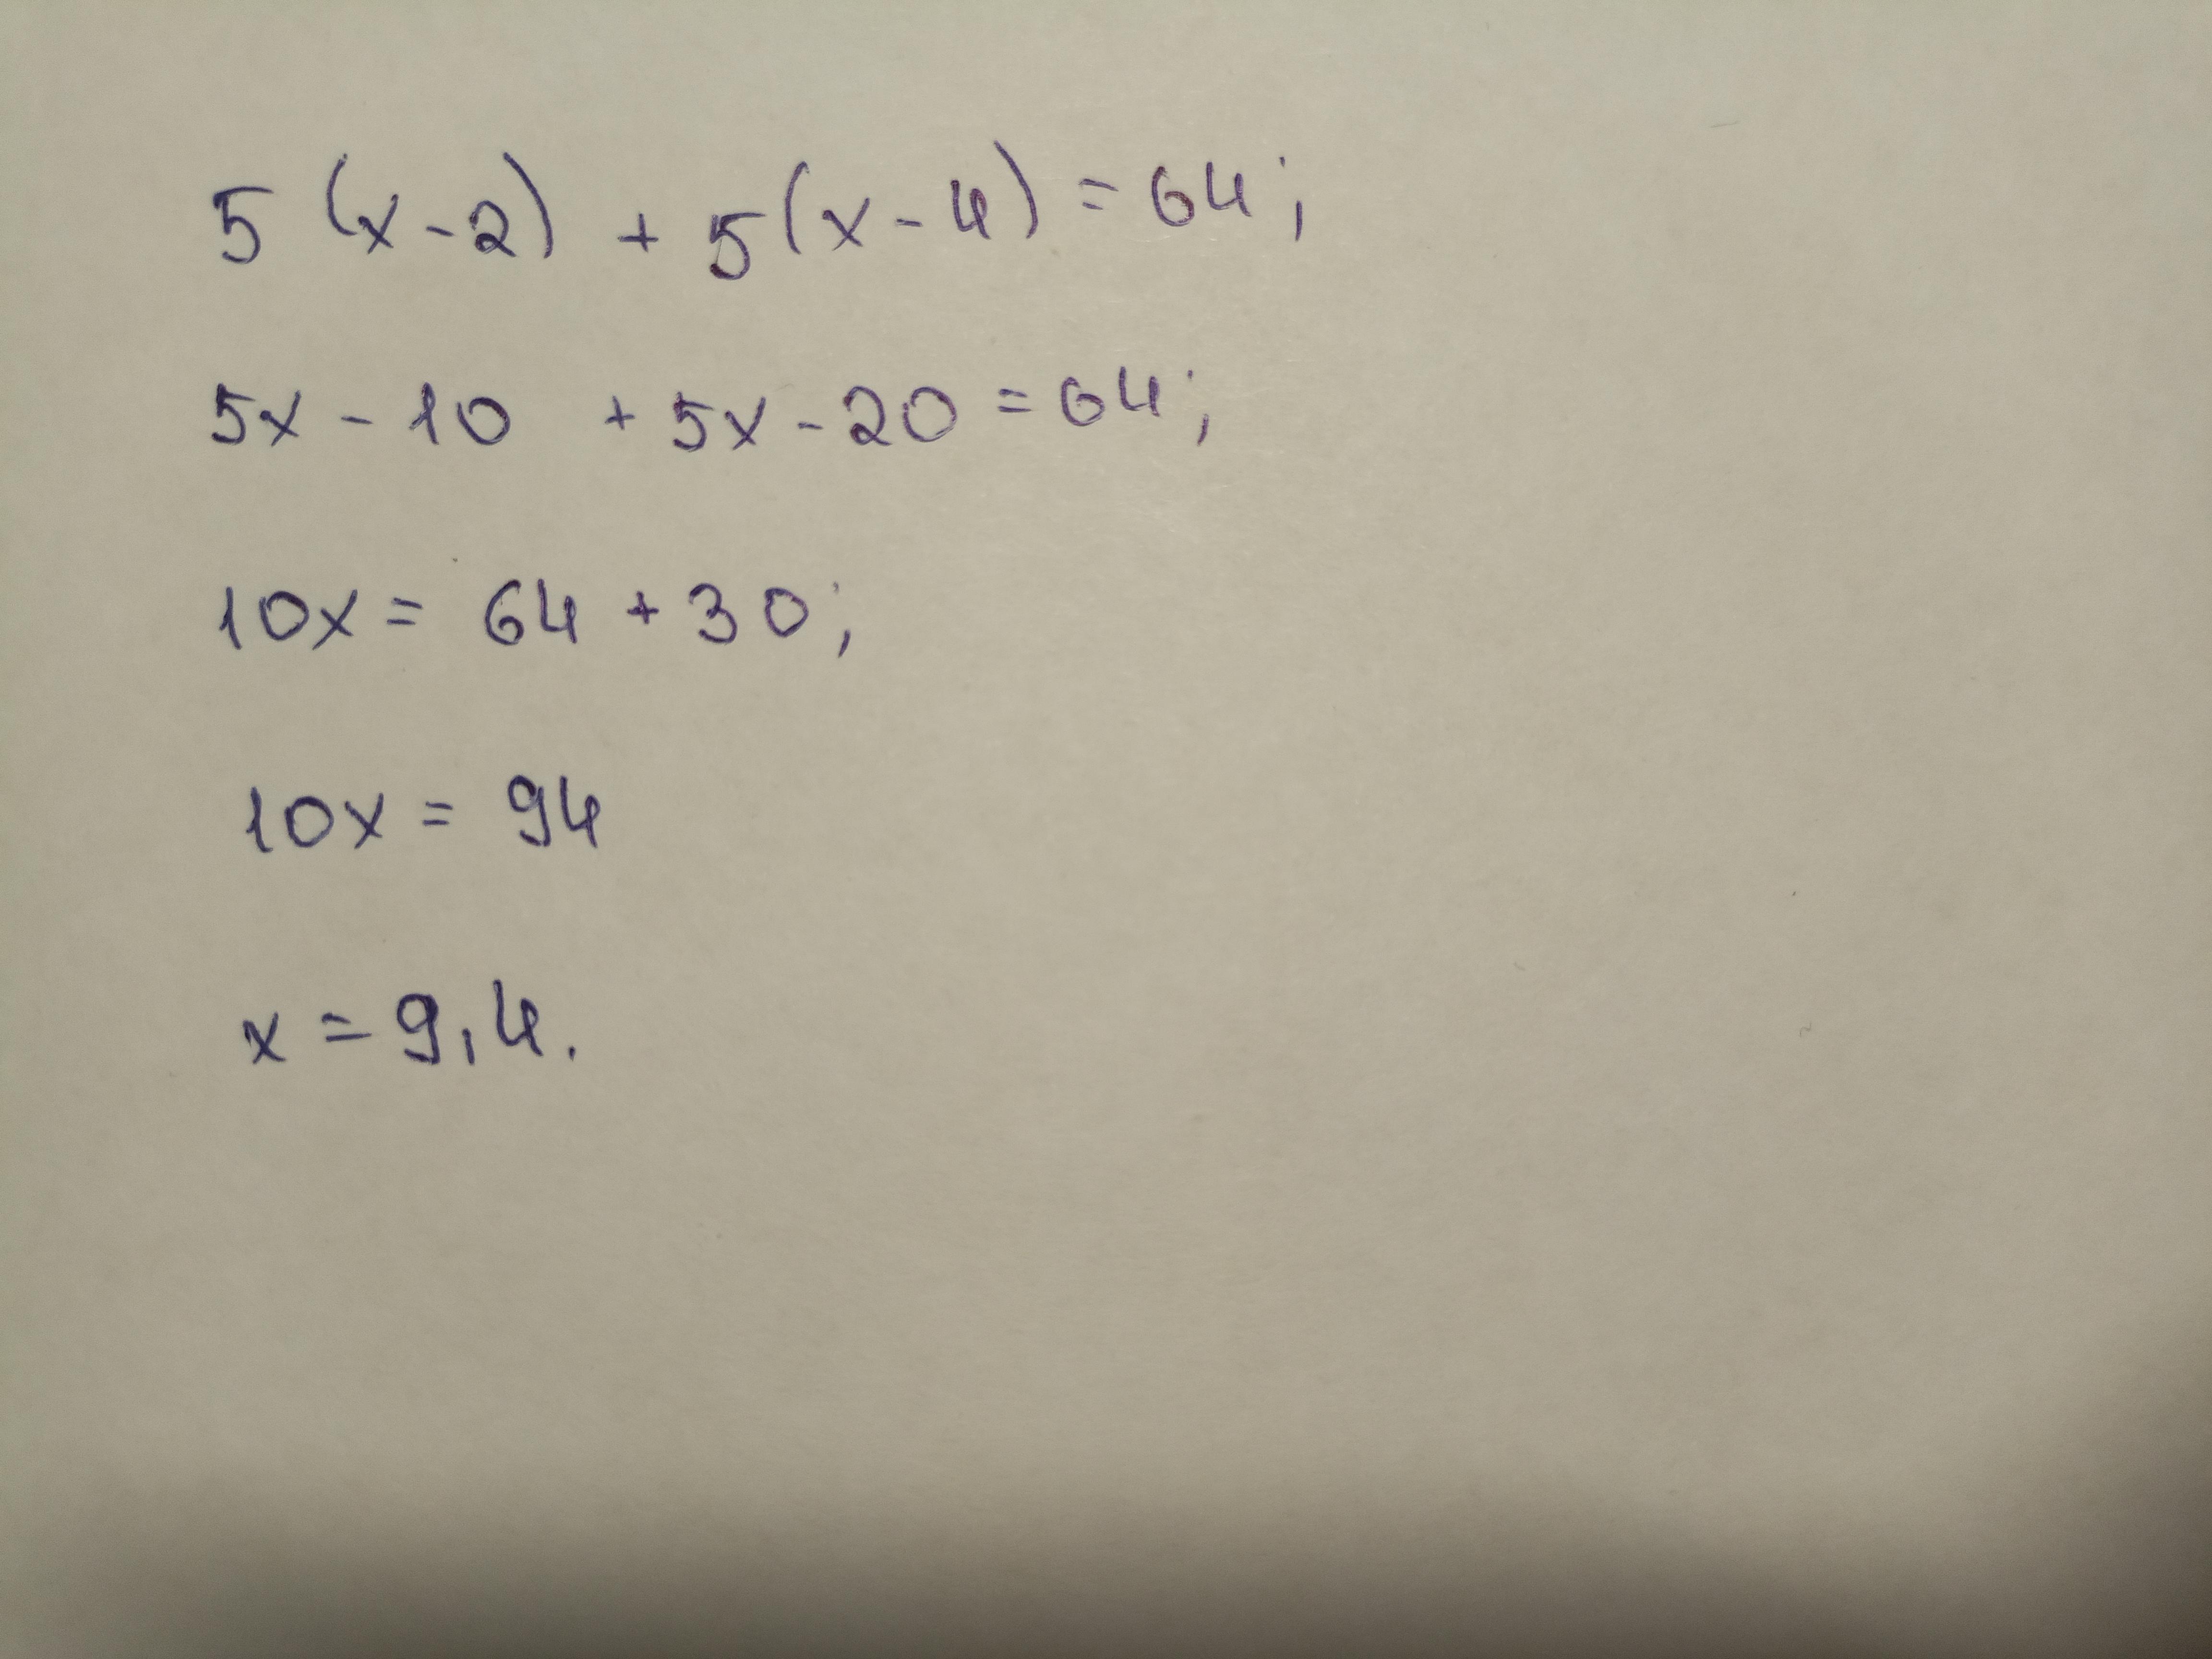 5(x-2) + 5(x-4) = 64;
5x - 10 + 5x - 20 = 64;
10x = 64 + 30;
10x = 94
x = 9,4.